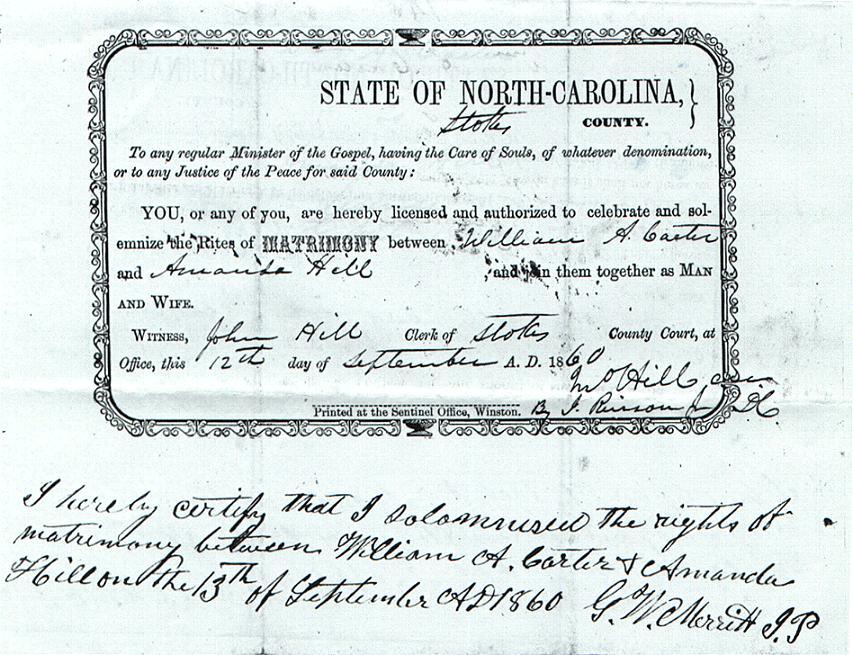 STATE OF NORTH-CAROLINA, }
Stokes COUNTY.
To any regular Minister of the Gospel, having the Care of Souls, of whatever denomination,
or to any Justice of the Peace for said County:
YOU, or any of you, are hereby licensed and authorized to celebrate and sol-
emnize the Rites of MATRIMONY between William A. Carter
and Amanda Hill and join them together as MAN
AND WIFE.
WITNESS, John Hill Clerk of Stokes County Court, at
Office, this 12th day of September A. D. 1860
Jno Hill
Printed at the Sentinel Office, Winston. By J.
I hereby certify that I solomnused the rights of
matrimony between William A. Carter & Amanda
Hill on the 13th of September AD 1860 G. W. Merritt J.P